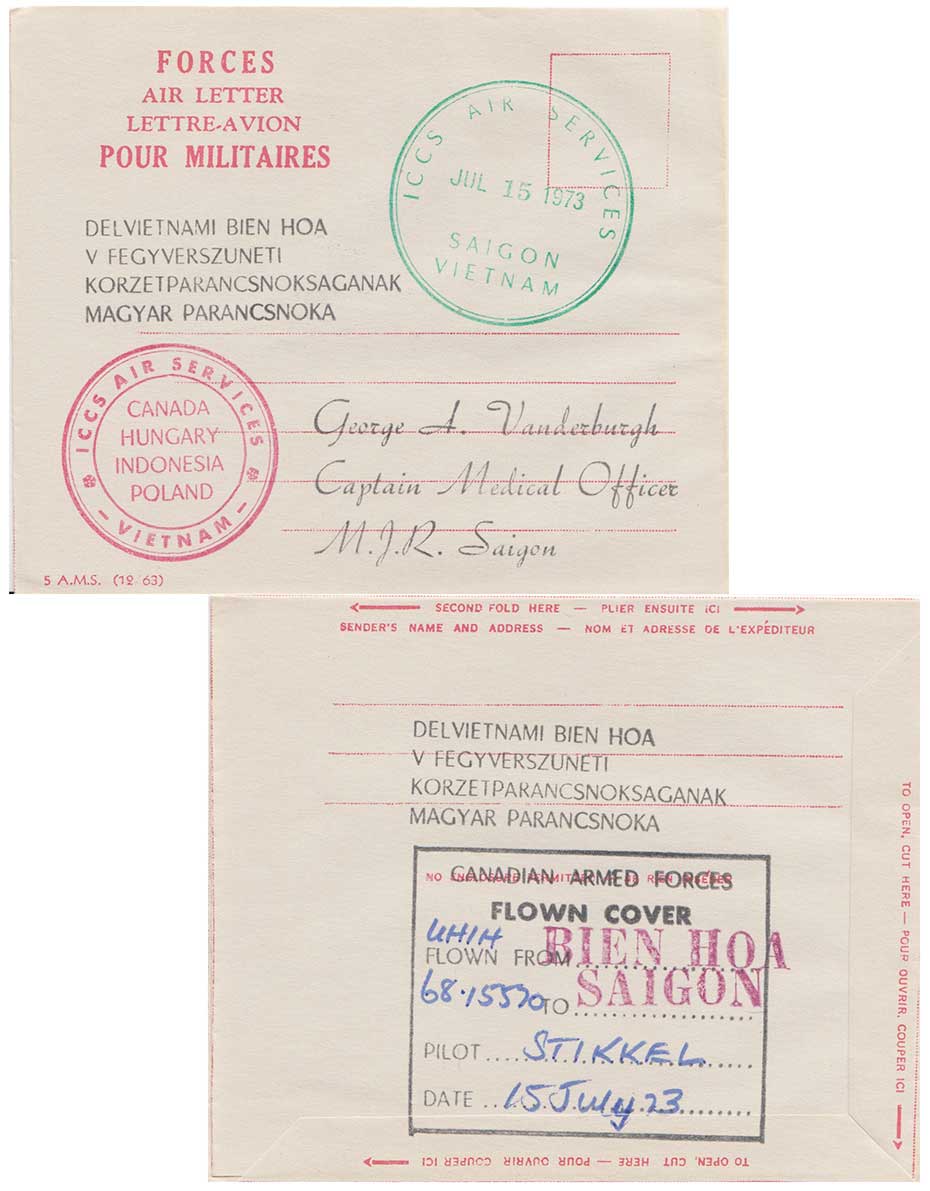 FORCES
AIR LETTER
LETTRE-AVION
POUR MILITAIRES
ICCS AIR SERVICES
JUL 15 1973
SAIGON
VIETNAM
DELVIETNAMI BIEN HOA
V FEGYVERSZUNETI
KORZETPARANCSNOKSAGANAK
MAGYAR PARANCSNOKA
ICCS AIR SERVICES
CANADA
HUNGARY
INDONESIA
POLAND
- VIETNAM -
George A. Vanderburgh
Captain Medical Officer
M.J.R. Saigon
5 A.M.S. (12 63)
SECOND FOLD HERE — PLIER ENSUITE ICI
SENDER'S NAME AND ADDRESS — NOM ET ADRESSE DE L'EXPÉDITEUR
DELVIETNAMI BIEN HOA
V FEGYVERSZUNETI
KORZETPARANCSNOKSAGANAK
MAGYAR PARANCSNOKA
NO ENCLOSURE PERMITTED
CANADIAN ARMED FORCES
FLOWN COVER
UH1H
FLOWN FROM BIEN HOA
68·15570
TO SAIGON
PILOT STIKKEL
DATE 15 July 23
TO OPEN, CUT HERE — POUR OUVRIR, COUPER ICI
TO OPEN, CUT HERE — POUR OUVRIR COUPER ICI